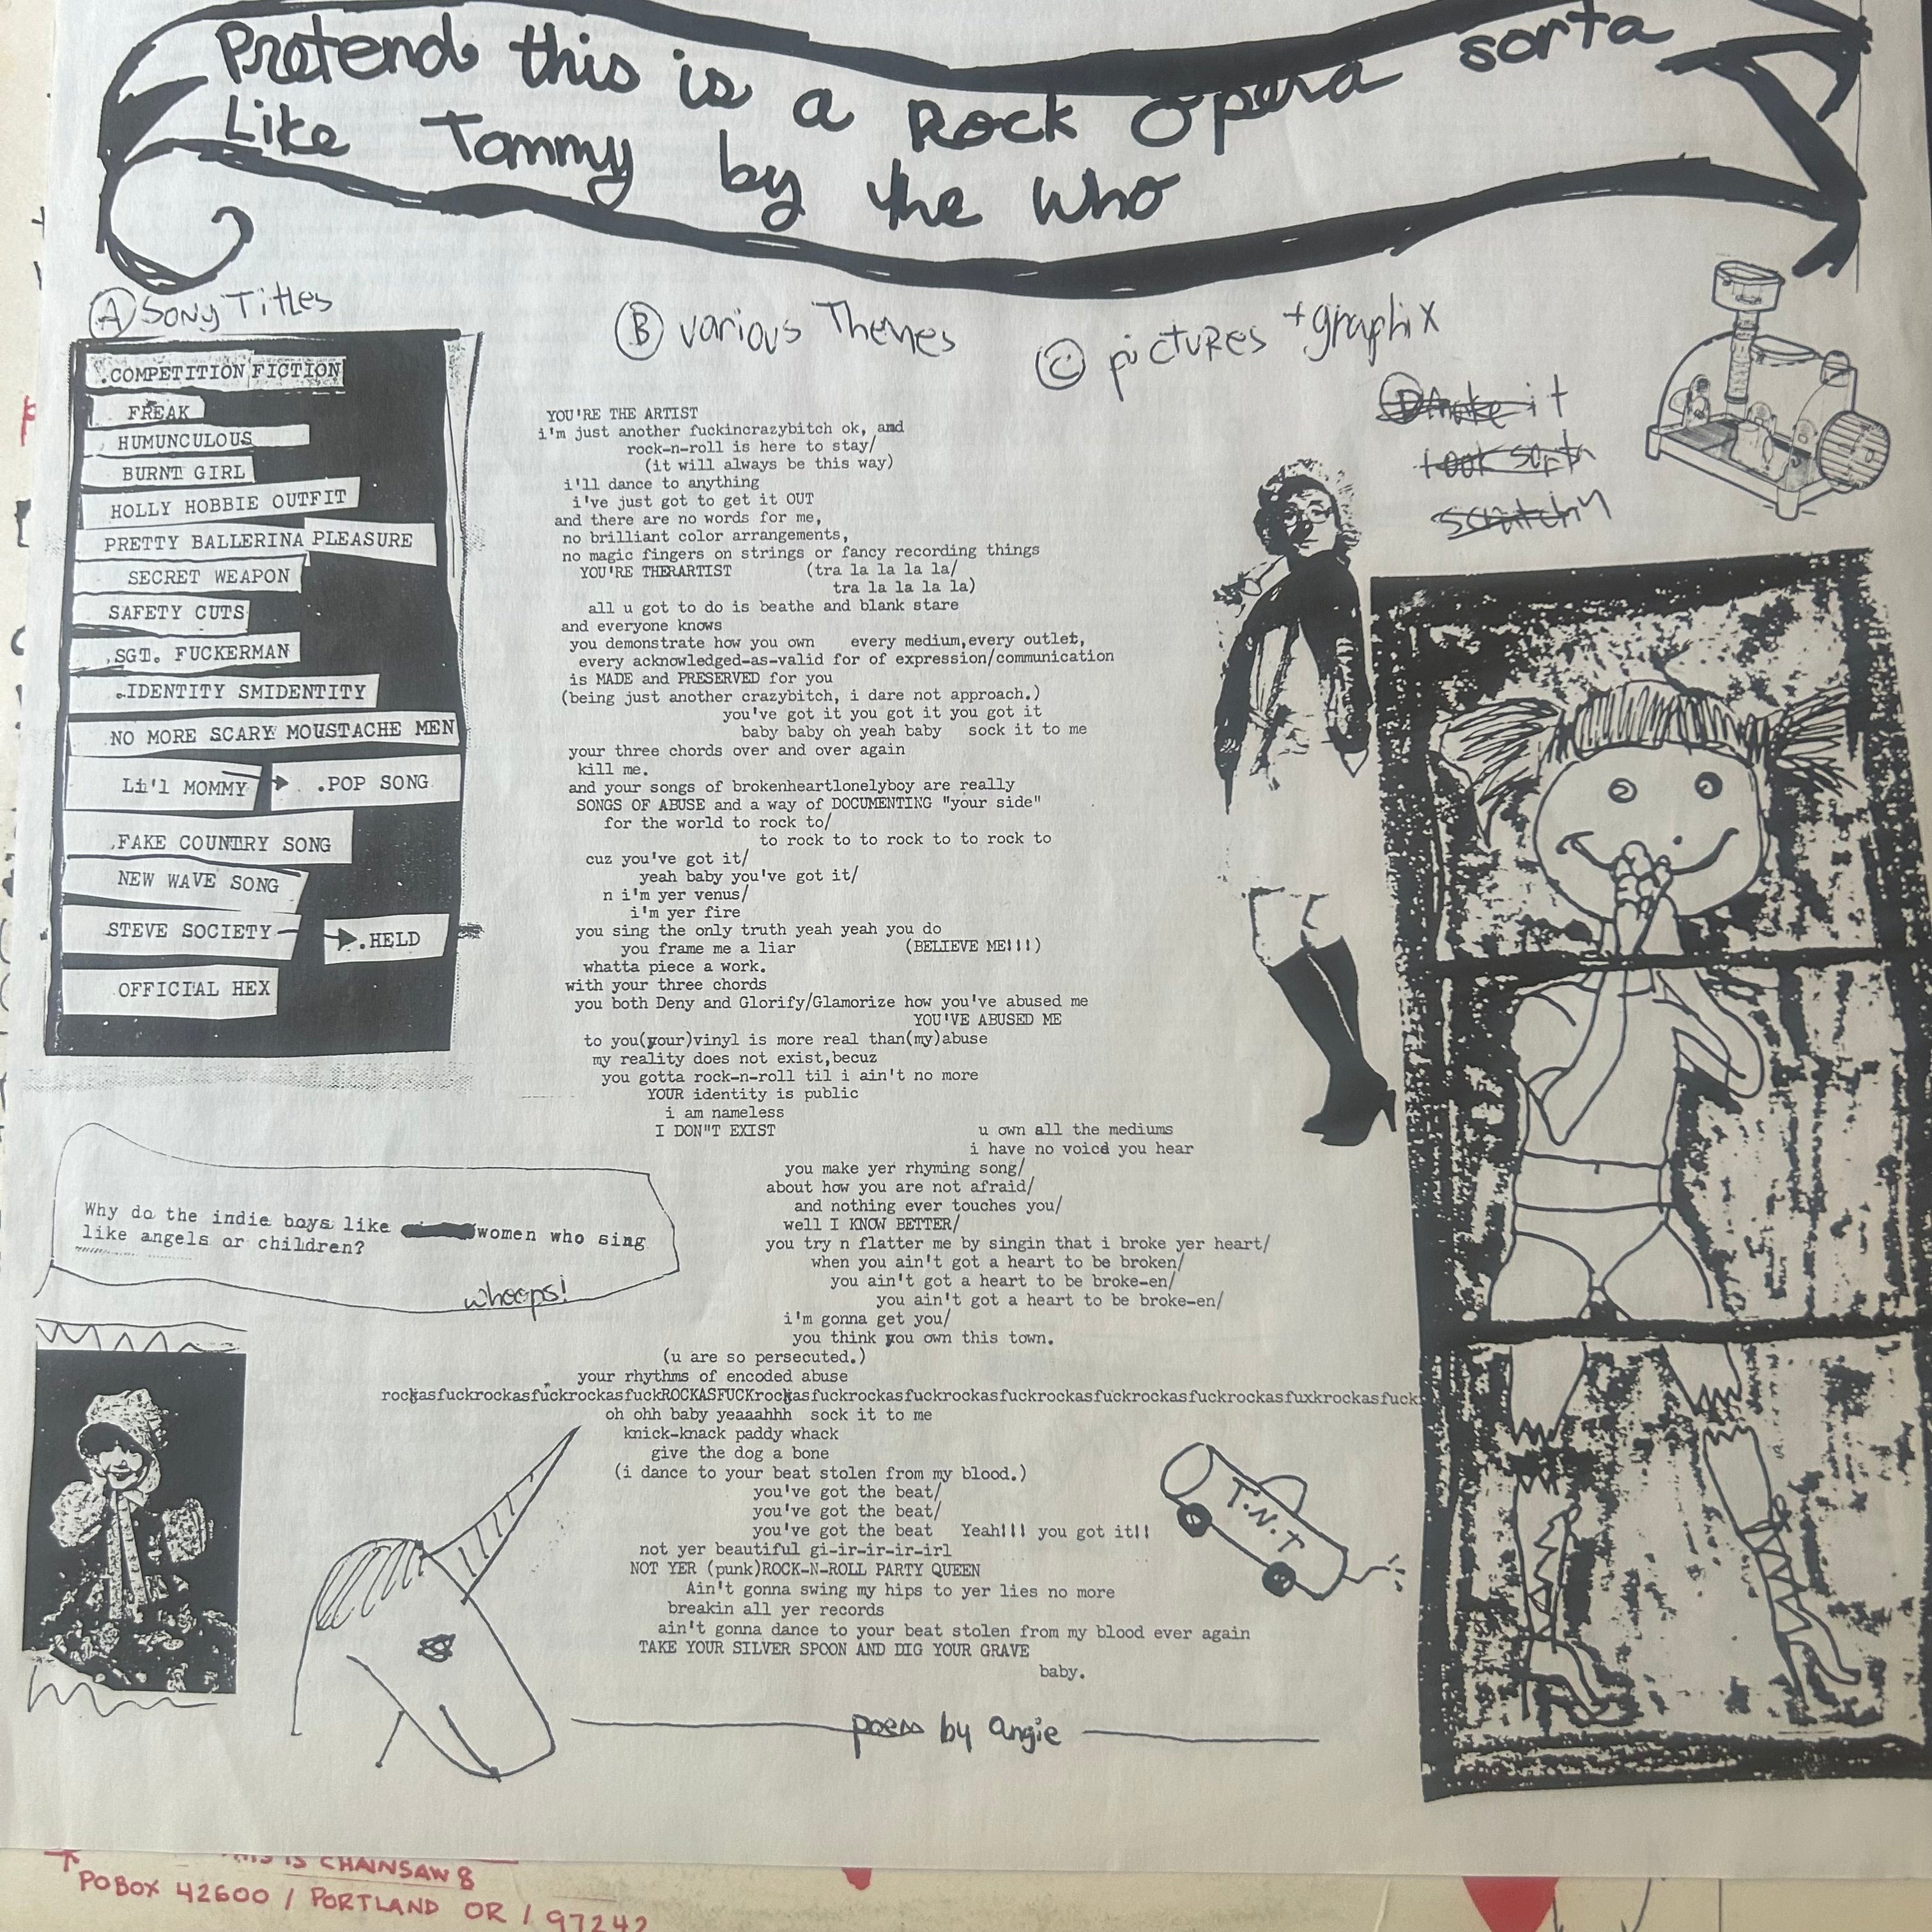 Pretend this is a Rock Opera sorta
Like Tommy by the Who
A Song Titles
.COMPETITION FICTION
FREAK
HUMUNCULOUS
BURNT GIRL
HOLLY HOBBIE OUTFIT
PRETTY BALLERINA PLEASURE
SECRET WEAPON
SAFETY CUTS
.SGT. FUCKERMAN
.IDENTITY SMIDENTITY
.NO MORE SCARY MOUSTACHE MEN
Li'l MOMMY → .POP SONG
.FAKE COUNTRY SONG
NEW WAVE SONG
STEVE SOCIETY → .HELD
OFFICIAL HEX
B various Themes
C pictures + graphix
D make it
look sorta
scratchy
YOU'RE THE ARTIST
i'm just another fuckincrazybitch ok, and
rock-n-roll is here to stay/
(it will always be this way)
i'll dance to anything
i've just got to get it OUT
and there are no words for me,
no brilliant color arrangements,
no magic fingers on strings or fancy recording things
YOU'RE THERARTIST (tra la la la la/
tra la la la la)
all u got to do is beathe and blank stare
and everyone knows
you demonstrate how you own every medium,every outlet,
every acknowledged-as-valid for of expression/communication
is MADE and PRESERVED for you
(being just another crazybitch, i dare not approach.)
you've got it you got it you got it
baby baby oh yeah baby sock it to me
your three chords over and over again
kill me.
and your songs of brokenheartlonelyboy are really
SONGS OF ABUSE and a way of DOCUMENTING "your side"
for the world to rock to/
to rock to to rock to to rock to
cuz you've got it/
yeah baby you've got it/
n i'm yer venus/
i'm yer fire
you sing the only truth yeah yeah you do
you frame me a liar (BELIEVE ME!!!)
whatta piece a work.
with your three chords
you both Deny and Glorify/Glamorize how you've abused me
YOU'VE ABUSED ME
to you(your)vinyl is more real than(my)abuse
my reality does not exist,becuz
you gotta rock-n-roll til i ain't no more
YOUR identity is public
i am nameless
I DON"T EXIST u own all the mediums
i have no voice you hear
you make yer rhyming song/
about how you are not afraid/
and nothing ever touches you/
well I KNOW BETTER/
you try n flatter me by singin that i broke yer heart/
when you ain't got a heart to be broken/
you ain't got a heart to be broke-en/
you ain't got a heart to be broke-en/
i'm gonna get you/
you think you own this town.
(u are so persecuted.)
your rhythms of encoded abuse
rockasfuckrockasfuckrockasfuckROCKASFUCKrockasfuckrockasfuckrockasfuckrockasfuckrockasfuckrockasfuxkrockasfuck
oh ohh baby yeaaahhh sock it to me
knick-knack paddy whack
give the dog a bone
(i dance to your beat stolen from my blood.)
you've got the beat/
you've got the beat/
you've got the beat Yeah!!! you got it!!
not yer beautiful gi-ir-ir-ir-irl
NOT YER (punk)ROCK-N-ROLL PARTY QUEEN
Ain't gonna swing my hips to yer lies no more
breakin all yer records
ain't gonna dance to your beat stolen from my blood ever again
TAKE YOUR SILVER SPOON AND DIG YOUR GRAVE
baby.
poem by angie
Why do the indie boys like women who sing
like angels or children?
whoops!
T.N.T
THIS IS CHAINSAW 8
PO BOX 42600 / PORTLAND OR / 97242